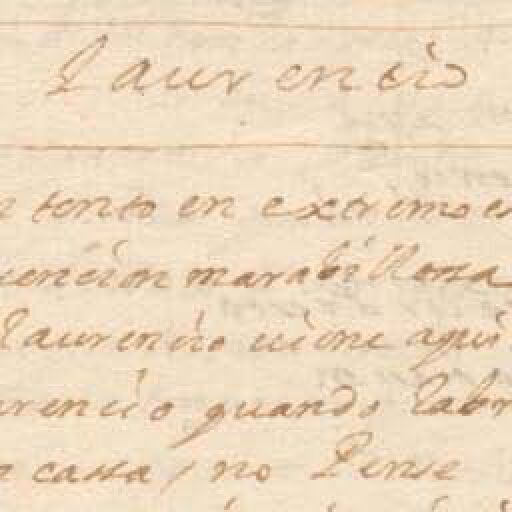 Laurencio
tento en extremo es
vencion marabillossa
laurencio uiene aqui
urencio quando labr
cassa / no Pense